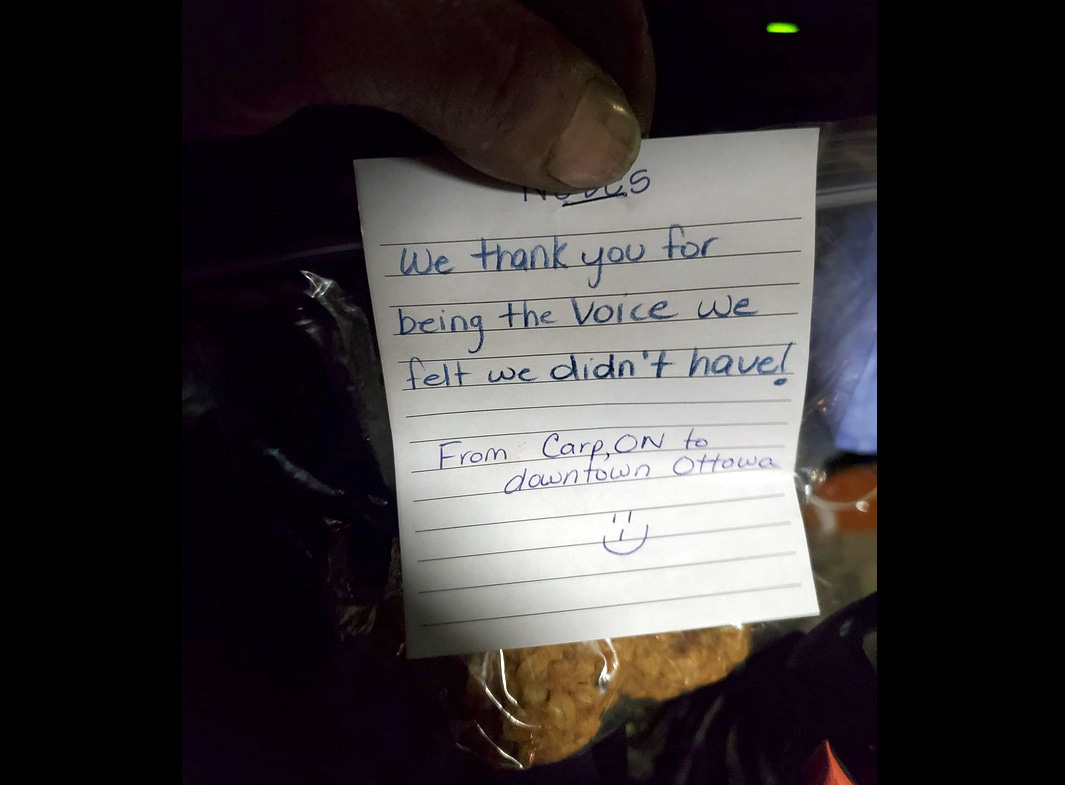 We thank you for
being the Voice we
felt we didn't have!
From Carp, ON to
downtown Ottowa